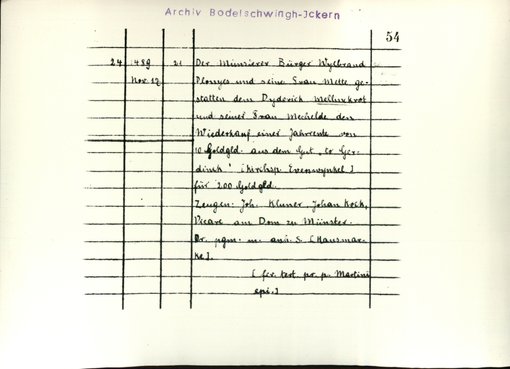 Archiv Bodelschwingh-Ickern
54
24 1489 21 Der Münsterer Bürger Wylbrand
Nov. 12 Plonyes und seine Frau Mette ge-
statten dem Dyderick Mellinckrot
und seiner Frau Mechelde den
Wiederkauf einer Jahrrente von
10 Goldgld. aus dem Gut „to Ger-
dinck" (Kirchsp. Evenwynkel)
für 200 Goldgld.
Zeugen: Joh. Kluner, Johan Kock,
Vicare am Dom zu Münster.
Or. pgm. m. anh. S. (Hausmar-
ke).
(fer. tert. pr. p. Martini
epi.)